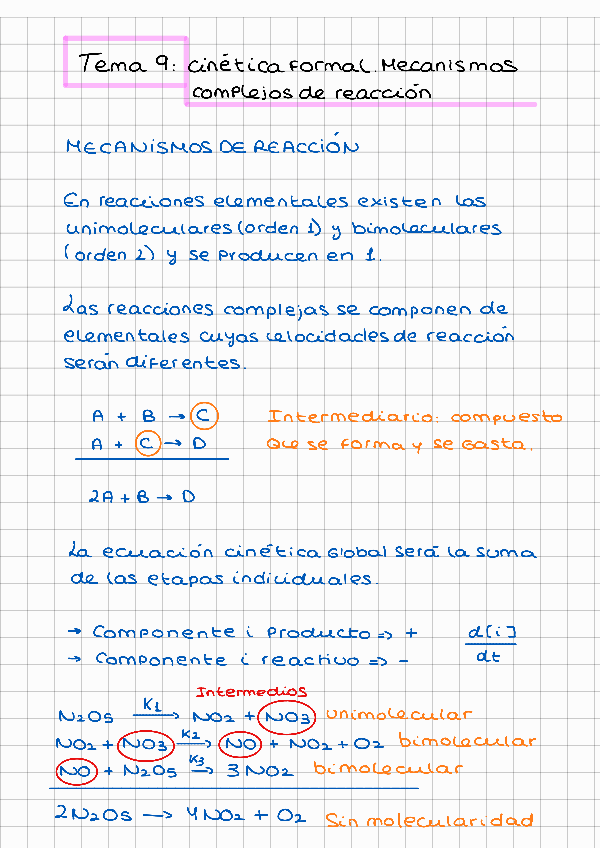 Tema 9: Cinética Formal. Mecanismos
complejos de reacción
MECANISMOS DE REACCIÓN
En reacciones elementales existen las
unimoleculares (orden 1) y bimoleculares
(orden 2) y se producen en 1.
Las reacciones complejas se componen de
elementales cuyas velocidades de reacción
serán diferentes.
A + B → C Intermediario: compuesto
A + C → D que se forma y se gasta.
2A + B → D
La ecuación cinética global será la suma
de las etapas individuales.
→ Componente i producto => + d[i]
→ Componente i reactivo => - dt
Intermedios
N2O5 K1 → NO2 + NO3 unimolecular
NO2 + NO3 K2 → NO + NO2 + O2 bimolecular
NO + N2O5 K3 → 3NO2 bimolecular
2N2O5 → 4NO2 + O2 Sin molecularidad